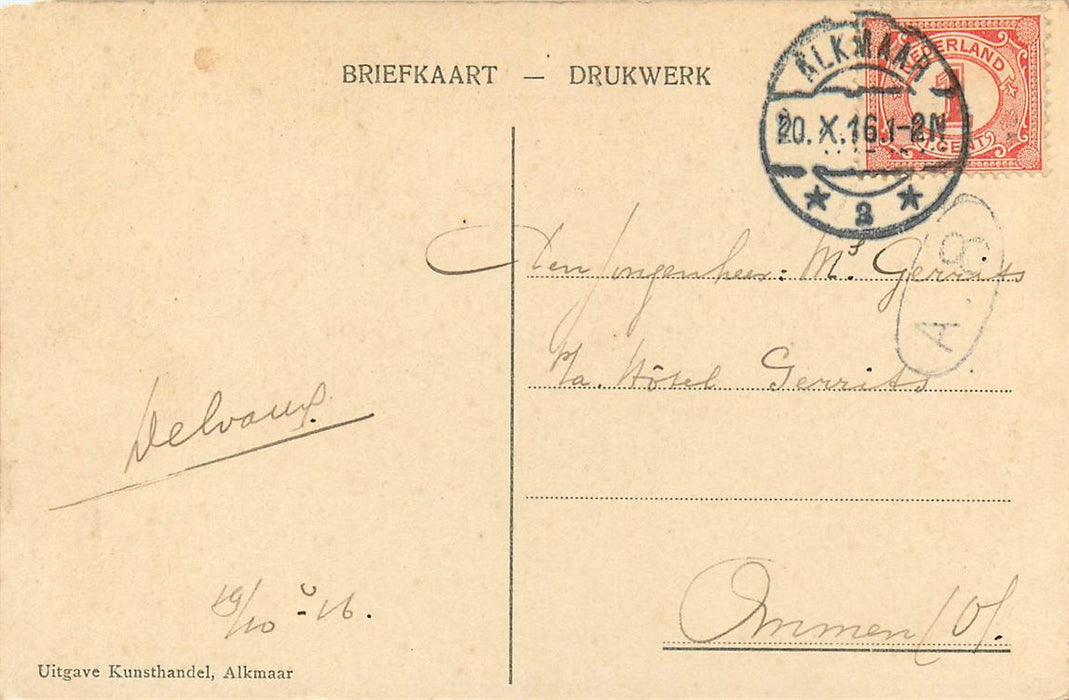 BRIEFKAART — DRUKWERK
NEDERLAND
1
1 CENT
ALKMAAR
20. X. 16. 1-2N
* 3 *
A.B
Den Jongenheer: Mˢ Gerrits
p/a. Hôtel Gerrits
Ommen (O).
Delvaux.
19/10 - 16.
Uitgave Kunsthandel, Alkmaar